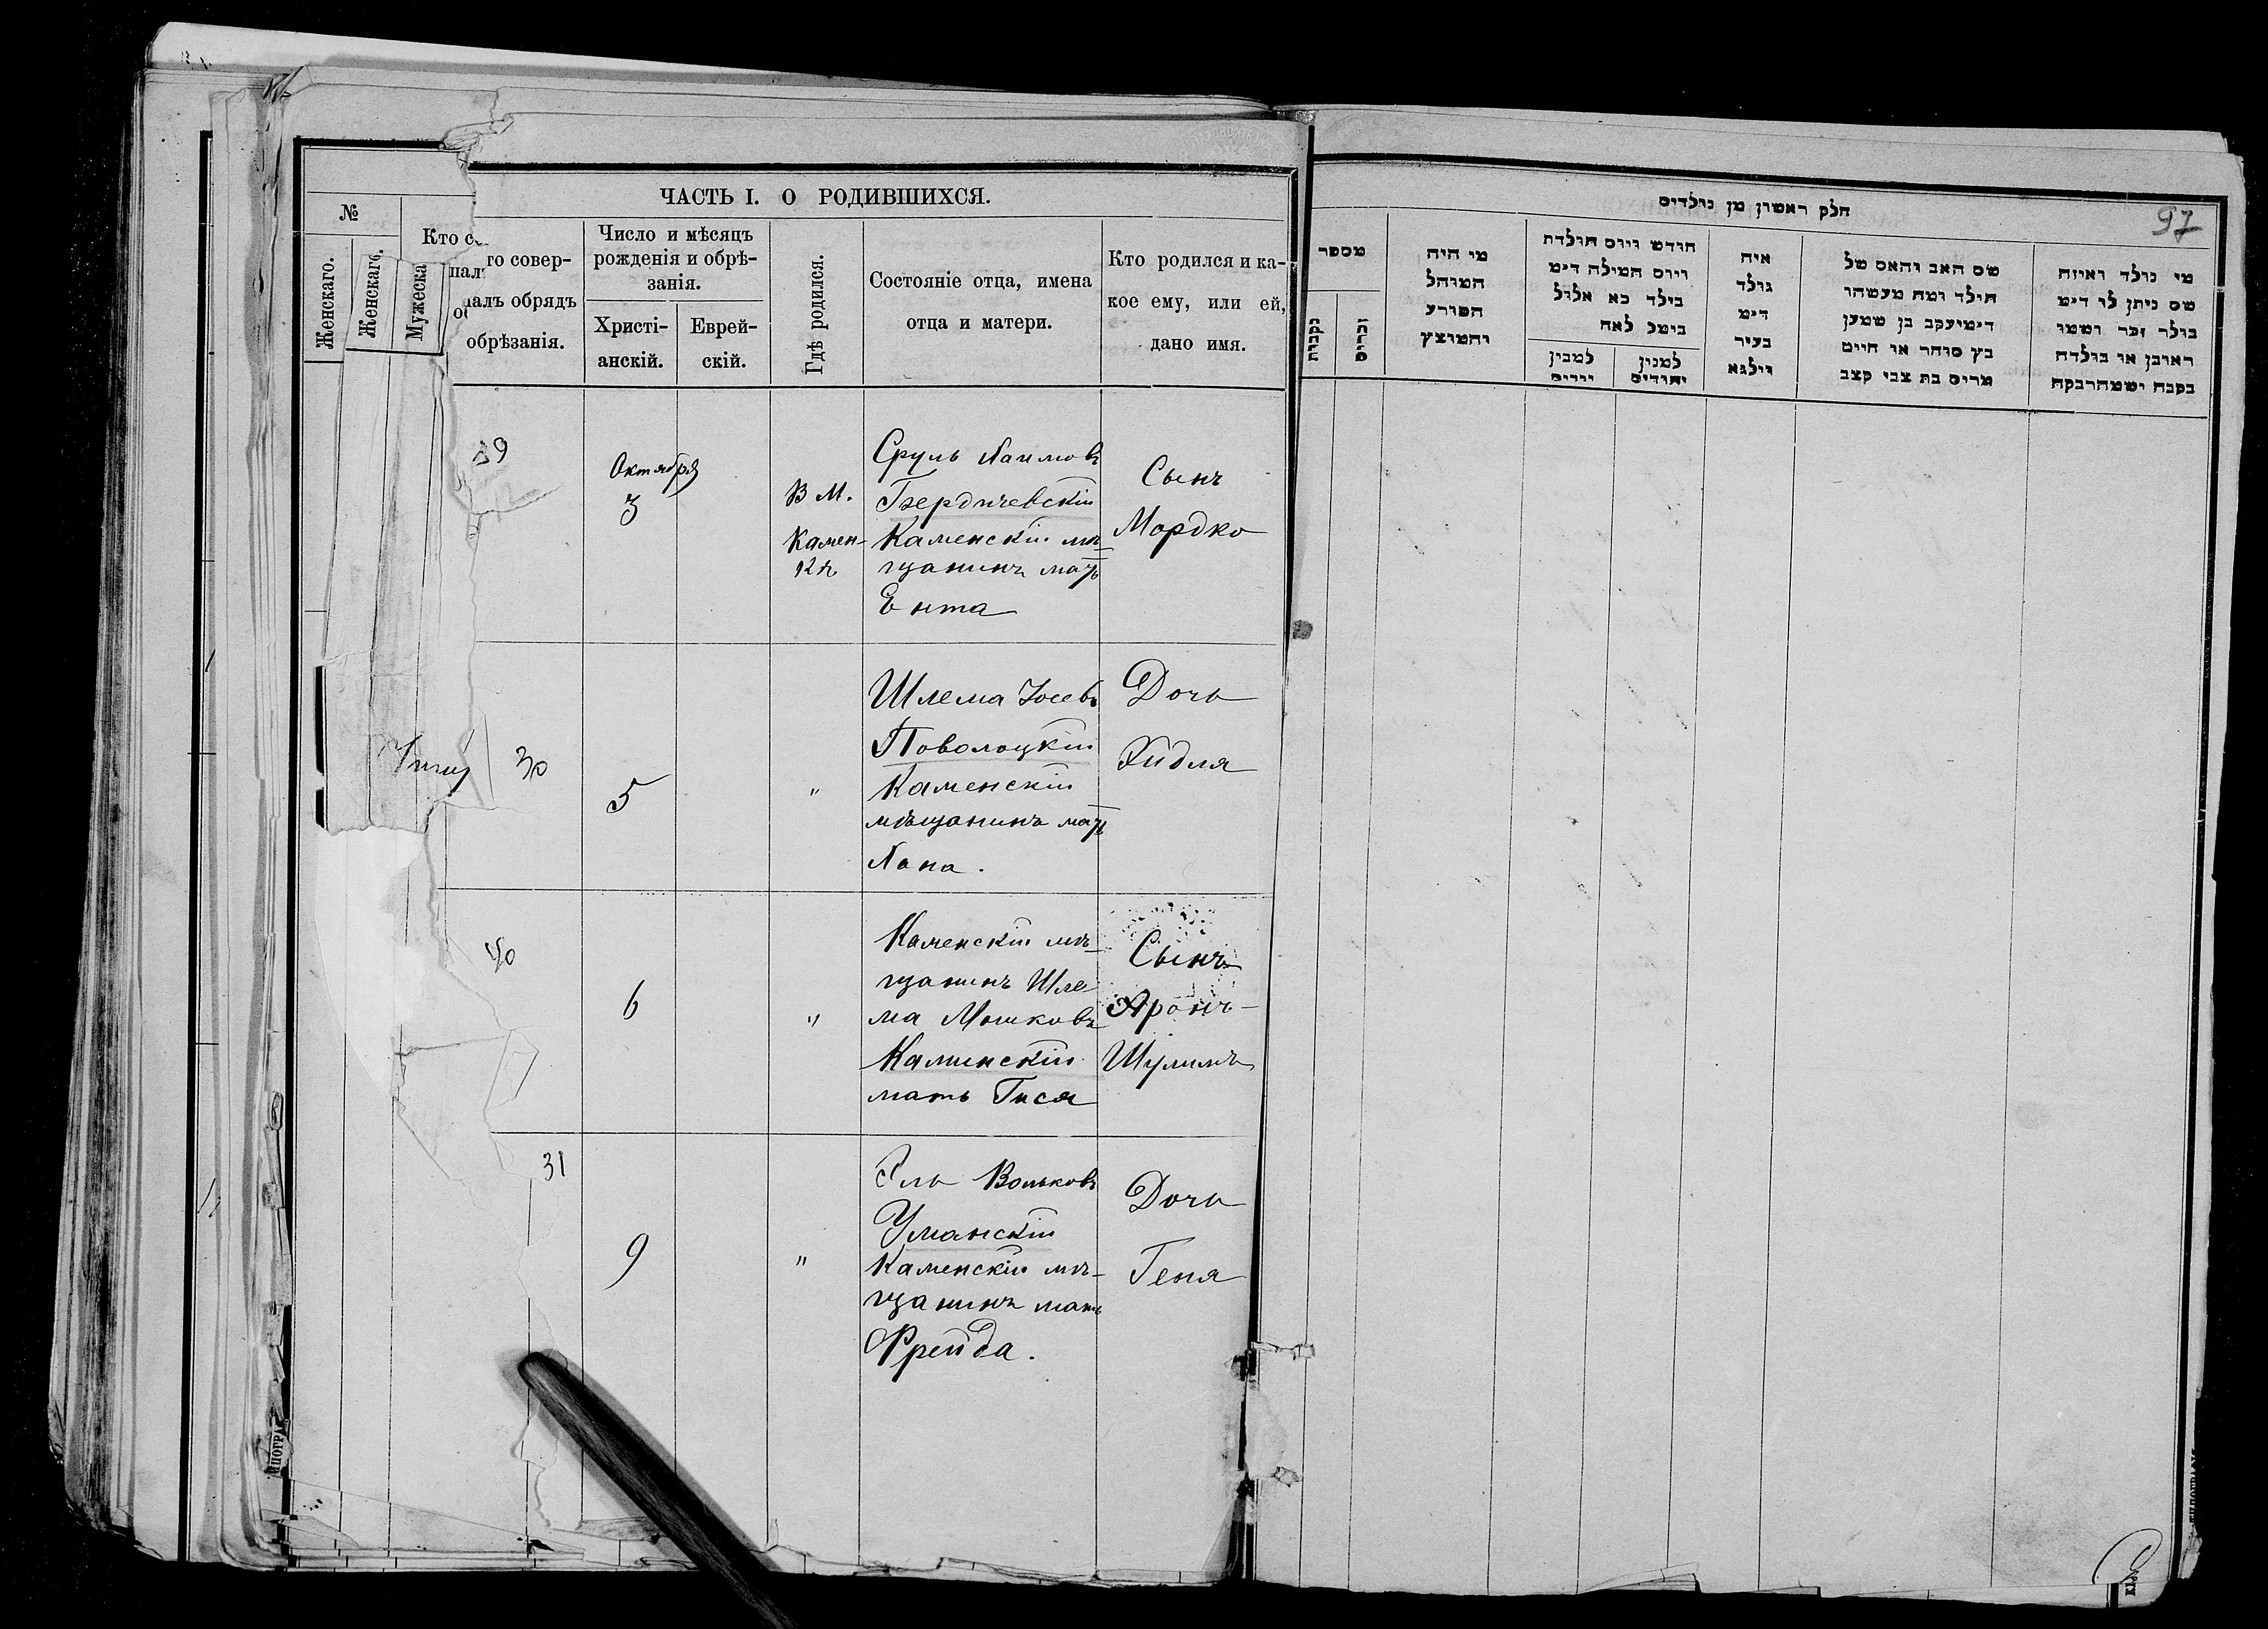 ЧАСТЬ I. О РОДИВШИХСЯ.
№
Женскаго.
Женскаго.
Мужеска
Кто со
го совер-
шалъ обрядъ
обрѣзанія.
Число и мѣсяцъ
рожденія и обрѣ-
занія.
Христі-
анскій.
Еврей-
скій.
Гдѣ родился.
Состояніе отца, имена
отца и матери.
Кто родился и ка-
кое ему, или ей,
дано имя.
39
Октября
3
В М.
Камен-
кѣ
Сруль Хаимовъ
Бердичевскій
Каменскій мѣ-
щанинъ мать
Ента
Сынъ
Мордко
30
5
"
Шлема Іосевъ
Поволоцкій
Каменскій
мѣщанинъ мать
Хана.
Дочь
Хидля
40
6
"
Каменскій мѣ-
щанинъ Шле
ма Мошковъ
Каминскій
мать Гися
Сынъ
Аронъ-
Шулимъ
31
9
"
Эль Вольковъ
Уманскій
Каменскій мѣ-
щанинъ мать
Фрейда.
Дочь
Геня
חלק ראשון מן נולדים
97
מספר
נקבות
זכרים
מי היה
המוהל
הפורע
והמוצץ
חודש ויום הולדת
ויום המילה דימ
בילד כא אלול
בימל לאח
למנין
יהודים
איה
נולד
דימ
בעיר
ווילנא
שם האב והאם של
הילד ומה מעשהו
דימיעקב בן שמען
בץ סוחר או חייט
מרים בת צבי קצב
מי נולד ואיזה
שם ניתן לו דימ
בילר זכר ושמו
ראובן או בולדה
בקבה ושמהרבקה